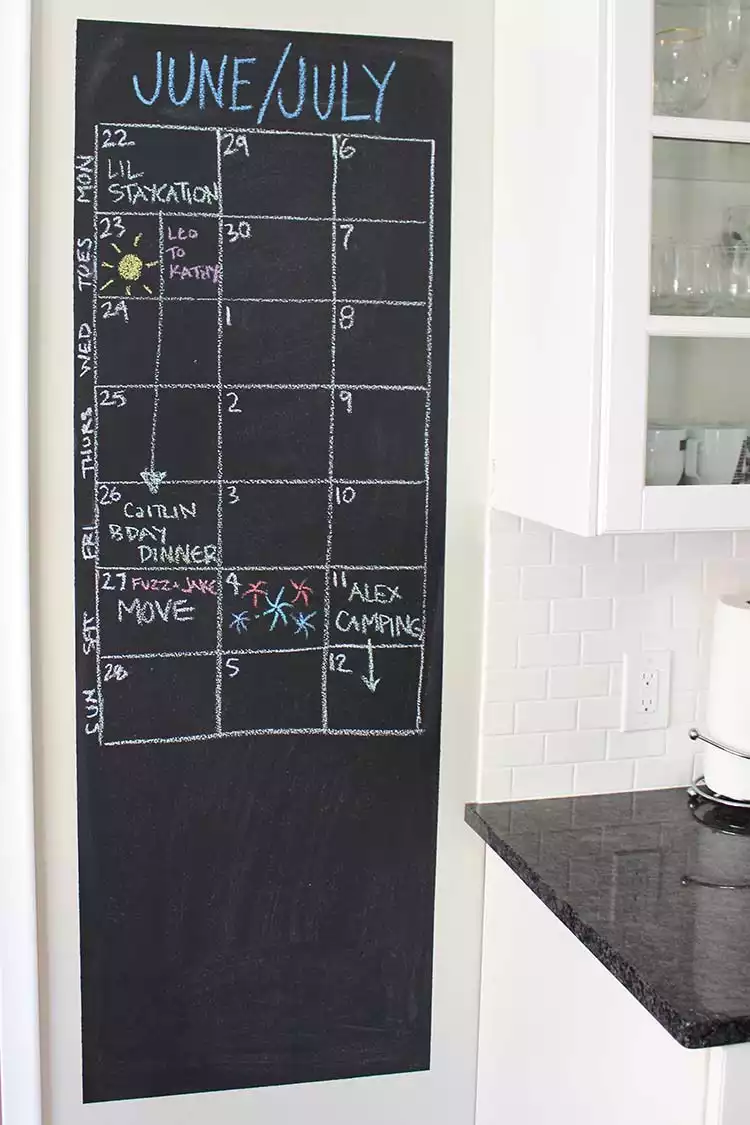 JUNE/JULY
MON 22 29 6
LIL
STAYCATION
TUES 23 30 7
LEO
TO
KATHY
WED 24 1 8
THURS 25 2 9
FRI 26 3 10
CAITLIN
BDAY
DINNER
SAT 27 FUZZ + JAKE 4 11
MOVE
ALEX
CAMPING
SUN 28 5 12